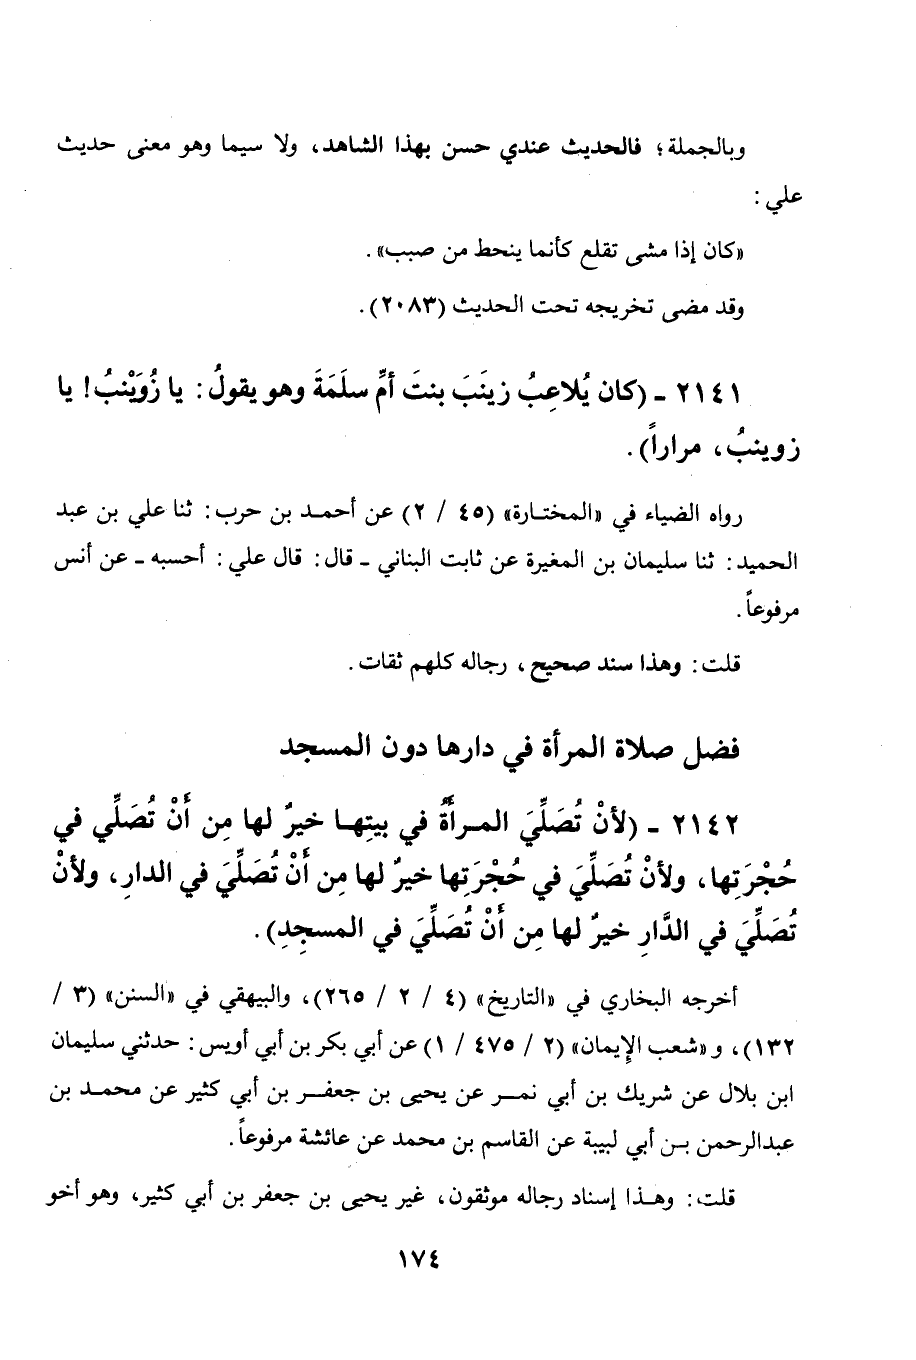 وبالجملة؛ فالحديث عندي حسن بهذا الشاهد، ولا سيما وهو معنى حديث
علي:
«كان إذا مشى تقلع كأنما ينحط من صبب».
وقد مضى تخريجه تحت الحديث (٢٠٨٣).
٢١٤١ - (كان يُلاعِبُ زينَبَ بنتَ أمِّ سلَمَةَ وهو يقولُ: يا زُوَيْنبُ! يا
زوينبُ، مراراً).
رواه الضياء في «المختارة» (٤٥ / ٢) عن أحمد بن حرب: ثنا علي بن عبد
الحميد: ثنا سليمان بن المغيرة عن ثابت البناني - قال: قال علي: أحسبه - عن أنس
مرفوعاً.
قلت: وهذا سند صحيح، رجاله كلهم ثقات.
فضل صلاة المرأة في دارها دون المسجد
٢١٤٢ - (لأنْ تُصَلِّيَ المرأةُ في بيتِها خيرٌ لها مِن أَنْ تُصَلِّي في
حُجْرَتِها، ولأنْ تُصَلِّيَ في حُجْرَتِها خيرٌ لها مِن أَنْ تُصَلِّيَ في الدارِ، ولأنْ
تُصَلِّيَ في الدَّارِ خيرٌ لها مِن أَنْ تُصَلِّيَ في المسجدِ).
أخرجه البخاري في «التاريخ» (٤ / ٢ / ٢٦٥)، والبيهقي في «السنن» (٣ /
١٣٢)، و «شعب الإيمان» (٢ / ٤٧٥ / ١) عن أبي بكر بن أبي أويس: حدثني سليمان
ابن بلال عن شريك بن أبي نمر عن يحيى بن جعفر بن أبي كثير عن محمد بن
عبدالرحمن بن أبي لبيبة عن القاسم بن محمد عن عائشة مرفوعاً.
قلت: وهذا إسناد رجاله موثقون، غير يحيى بن جعفر بن أبي كثير، وهو أخو
١٧٤